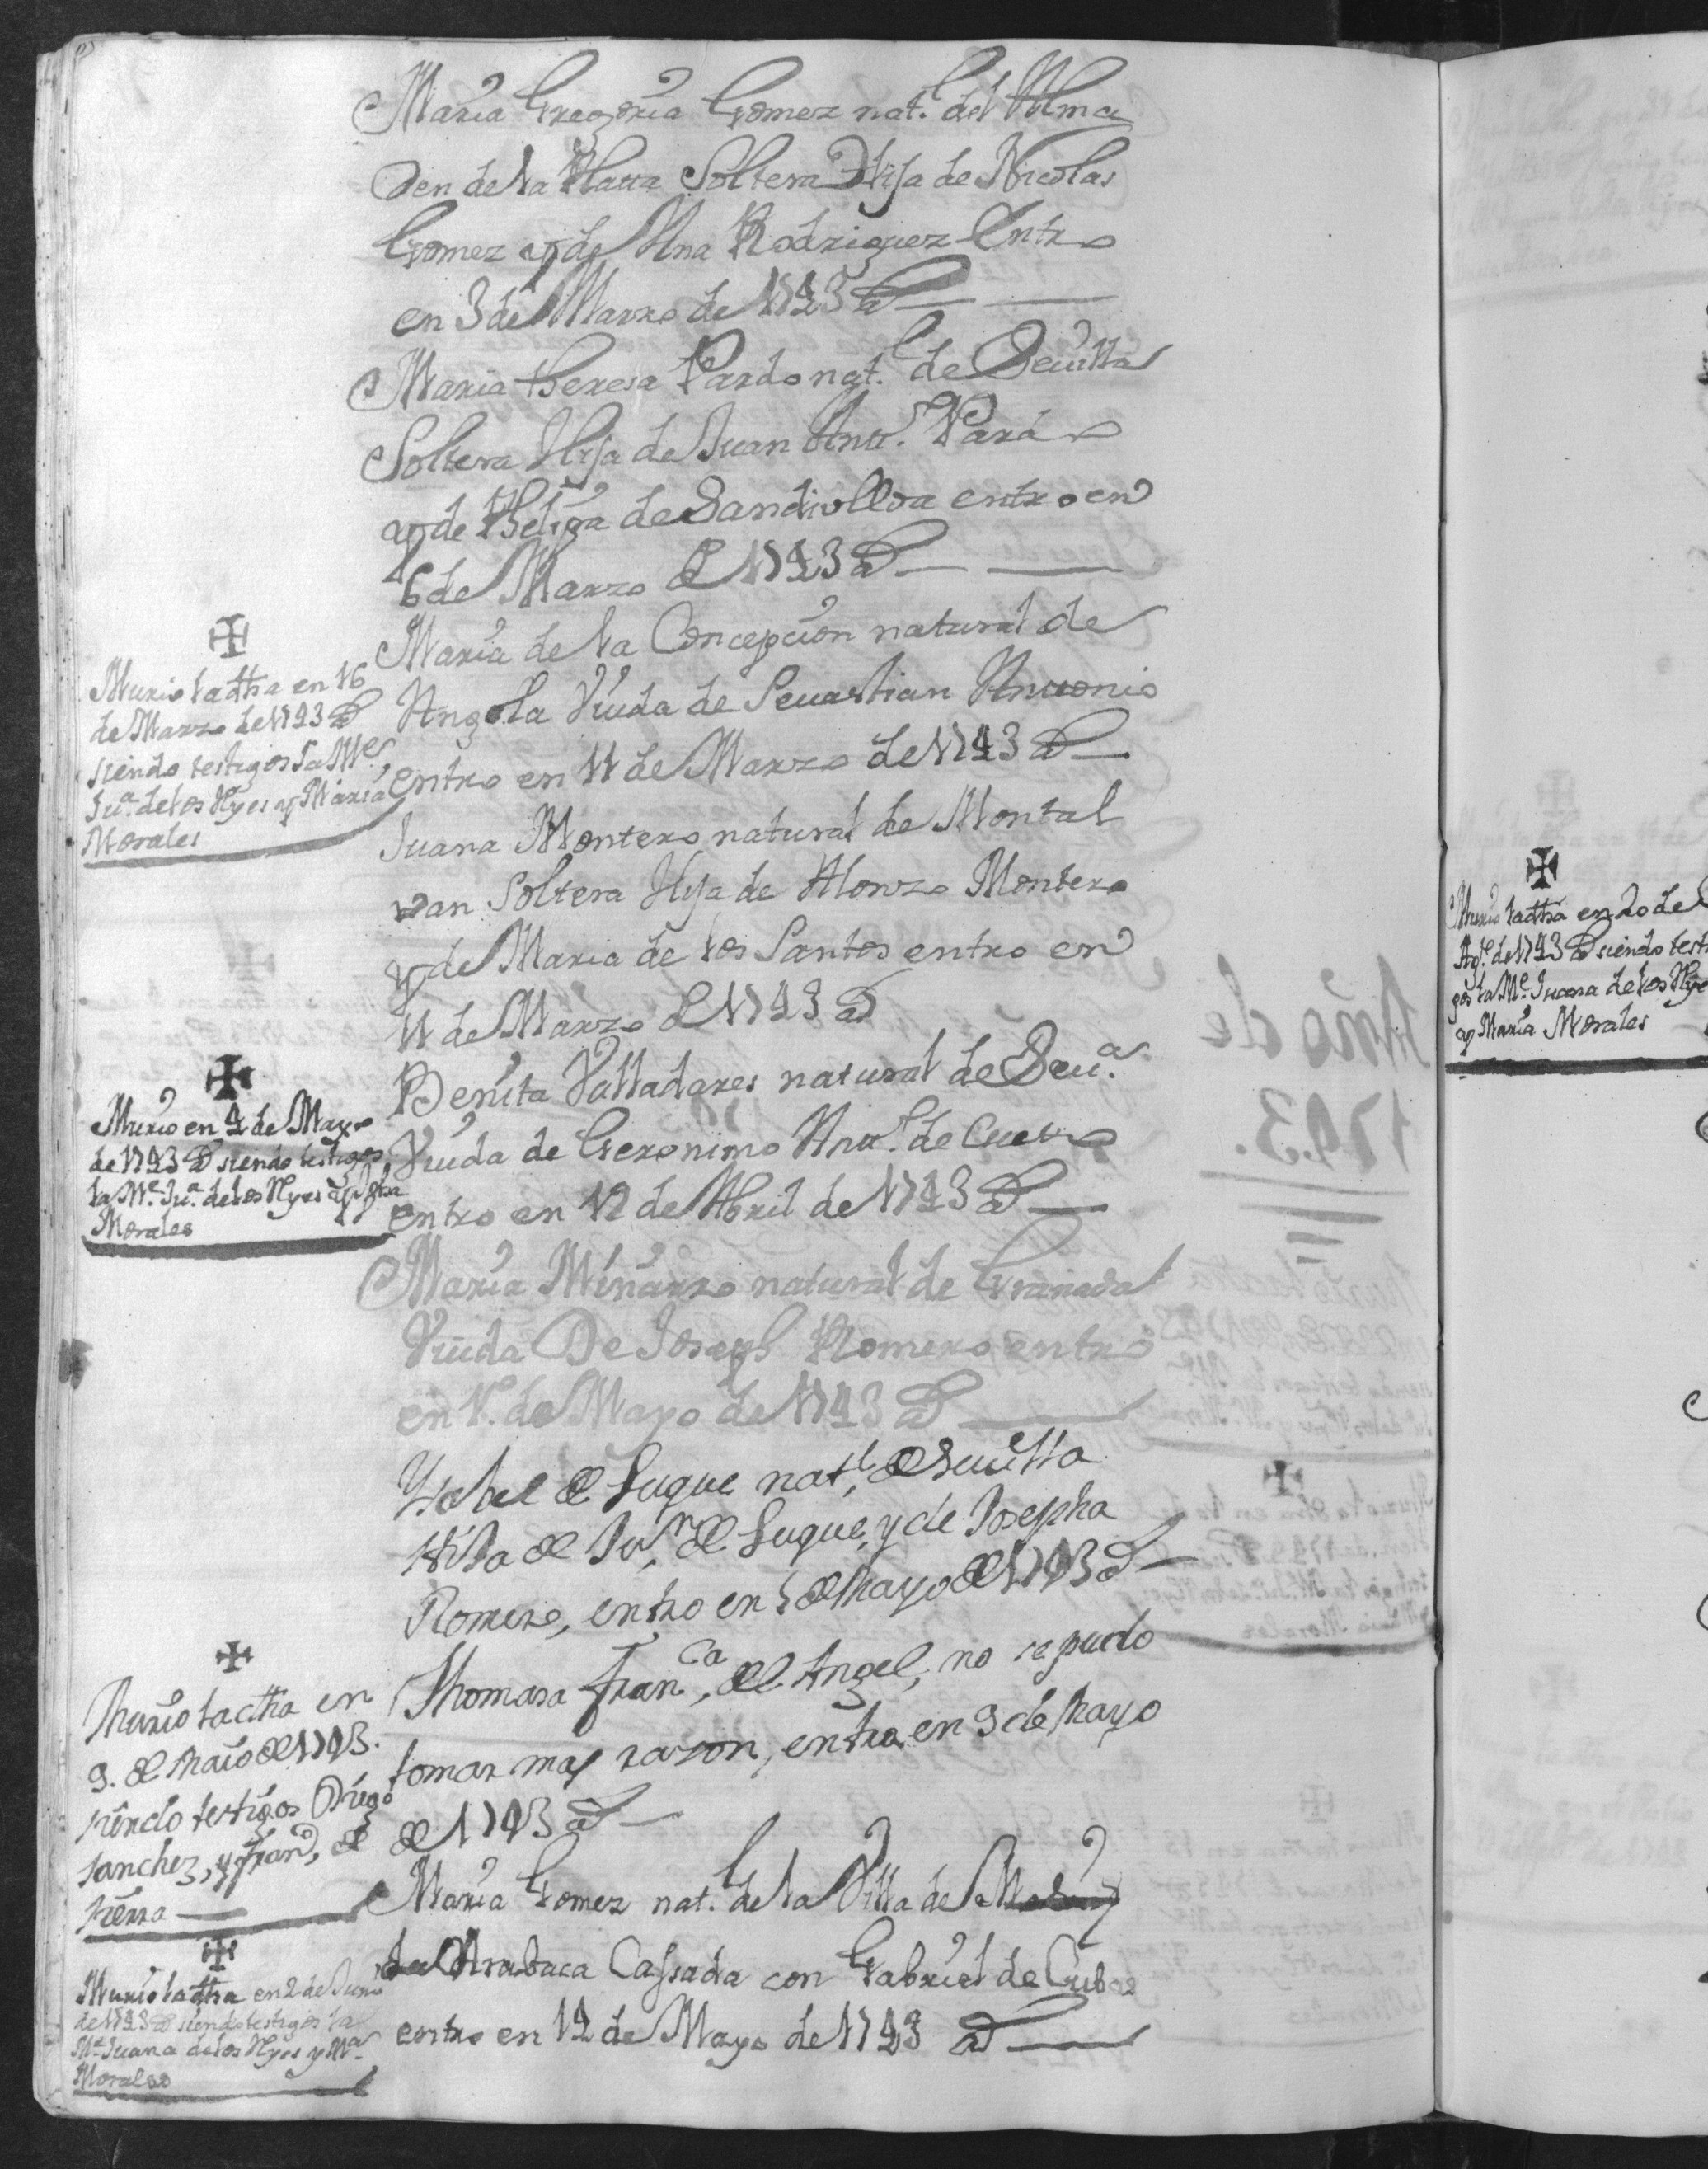 Maria Gregoria Gomez nat.l del Alma
den de la Platta Soltera Hija de Nicolas
Gomez y de Ana Rodriguez Entro
en 3 de Marzo de 1743 a.s
Maria theresa Pardo nat.l de Seuilla
Soltera Hija de Juan Antt.o Pardo
y de de Sandiollea entro en
6 de Marzo de 1743 a.s
Maria de la Concepcion natural de
Angola Viuda de Seuastian Anttonio
entro en 11 de Marzo de 1743 a.s
Juana Montero natural de Montal
van Soltera Hija de Alonzo Montero
y de Maria de los Santos entro en
11 de Marzo de 1743 a.s
Benita Valladares natural de Seu.a
Viuda de Geronimo Antt.o de Cueva
entro en 12 de Abril de 1743 a.s
Maria Minarro natural de Granada
Viuda De Joseph Romero entro
en 1.o de Mayo de 1743 a.s
Ysabel de Luque nat.l de Seuilla
Hija de Ju.n de Luque, y de Josepha
Romero, entro en de Mayo de 1743 a.s
Thomasa Fran.ca, del Angel, no se pudo
tomar mas razon, entro en 9 de Mayo
de 1743 a.s
Maria Gomez nat.l de la Villa de
Cassada con Gabriel de Cubas
entro en 14 de Mayo de 1743 a.s
Murio la dha en 16
de Marzo de 1743 a.s
siendo testigos la M.e
Ju.a de los Ryes y Maria
Morales
Murio en 4 de Mayo
de 1743 a.s siendo testigos
la M.e Ju.a de los Ryes y
Morales
Murio la dha en
9. de Maio de 1743.
siendo testigos Diego
sanchez, y Fran.co, de
sierra
Murio la dha en 2 de Junio
de 1743 a.s siendo testigos la
M.e Juana de los Ryes y M.a
Morales
Murio la dha en 20 de
Ag.to de 1743 a.s siendo testi
gos la M.e Juana de los Rye
y Maria Morales